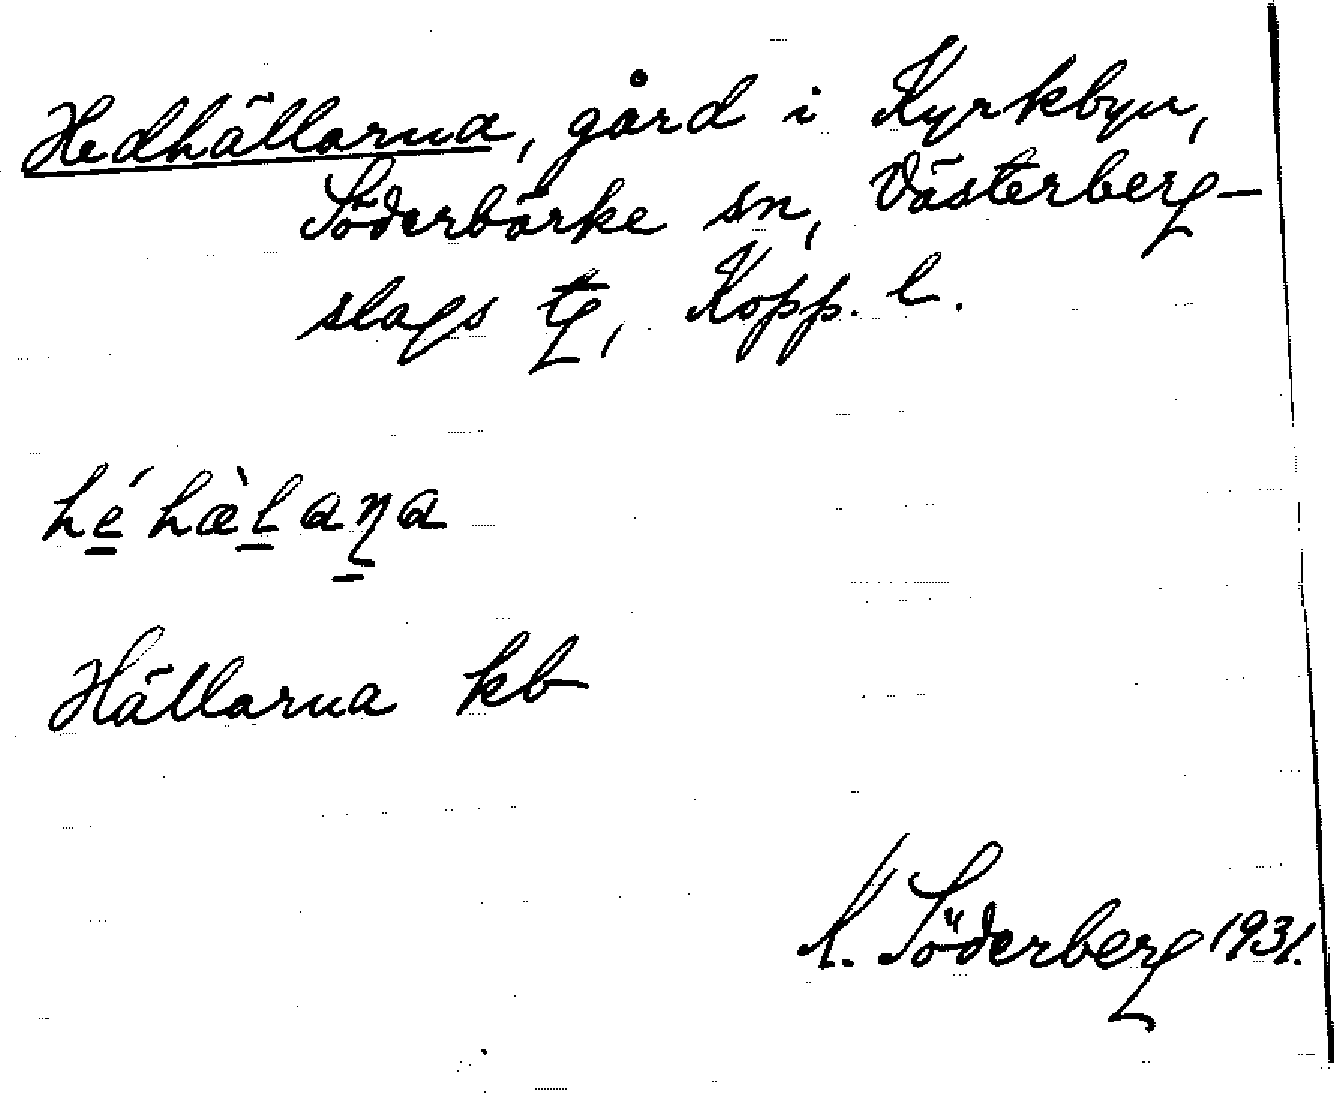 Hedhällarna, gård i Kyrkbyn,
Söderbärke sn, Västerberg-
slags tg, Kopp. l.
hé hæ̀l aṇa
Hällarna kb
K. Söderberg 1931.